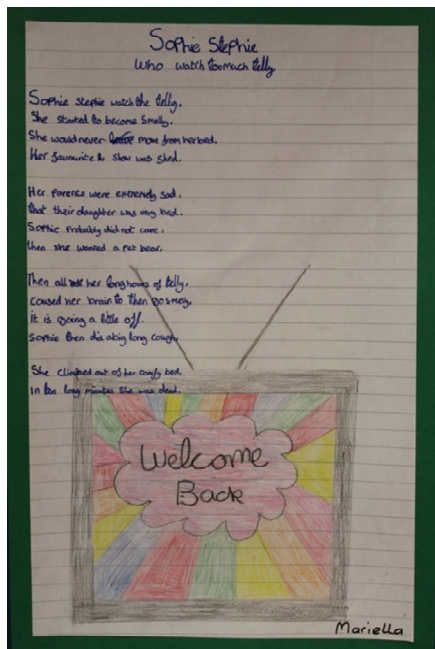 Sophie Stephie
Who watch too much telly.
Sophie stephie watch the telly.
She started to become smelly.
She would never move from her bed.
Her favourite tv show was shed.
Her parents were extremely sad.
that their daughter was very bad.
Sophie Probably did not care.
then she wanted a Pet bear.
Then all her long hours of telly.
caused her brain to then go smely.
it is going a little off.
Sophie then did a big long cough.
She climbed out of her comfy bed.
In ten long minutes she was dead.
Welcome
Back
Mariella